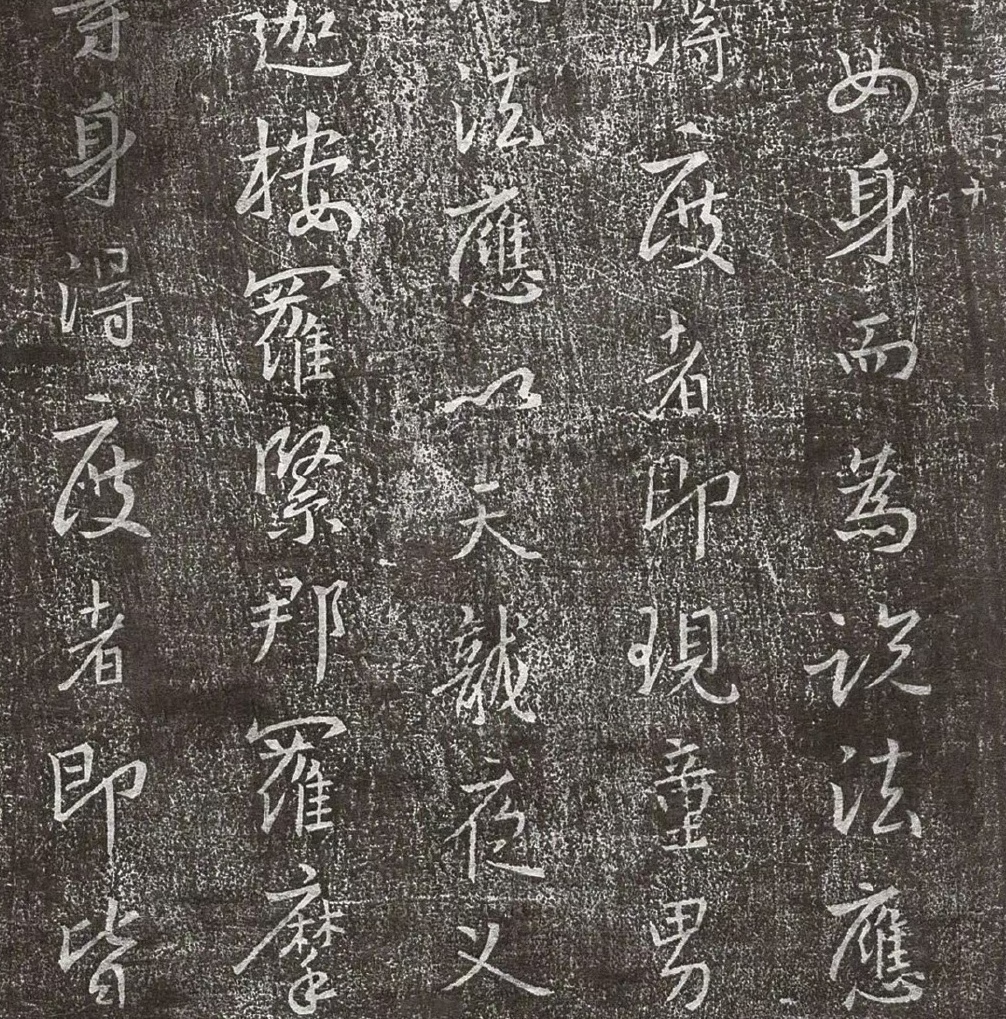 女身而為說法應
得度者即現童男
法應以天龍夜叉
迦樓羅緊那羅摩
等身得度者即皆